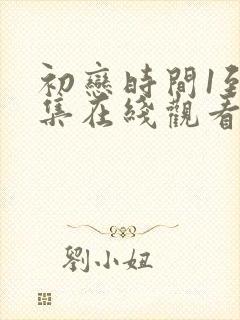 初戀時間1至
集在綫觀看
劉小妞